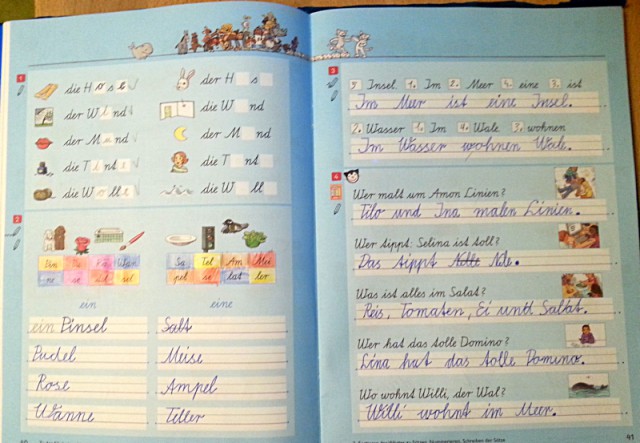 1
die Hose der H s
der Wind die W nd
der Mund der M nd
die Tinte die T nt
die Wolle die W ll
2
Pin Pu Ro Wan Sa Tel Am Mei
ne se del sel pel se lat ler
ein eine
ein Pinsel Salt
Pudel Meise
Rose Ampel
Wanne Teller
3
5. Insel 1. Im 2. Meer 4. eine 3. ist
Im Meer ist eine Insel.
2. Wasser 1. Im 4. Wale 3. wohnen
Im Wasser wohnen Wale.
4
Wer malt um Amon Linien?
Tilo und Ina malen Linien.
Wer tippt: Selina ist toll?
Das tippt Nolle Nile.
Was ist alles im Salat?
Reis, Tomaten, Ei und Salat.
Wer hat das tolle Domino?
Lina hat das tolle Domino.
Wo wohnt Willi, der Wal?
Willi wohnt im Meer.
41